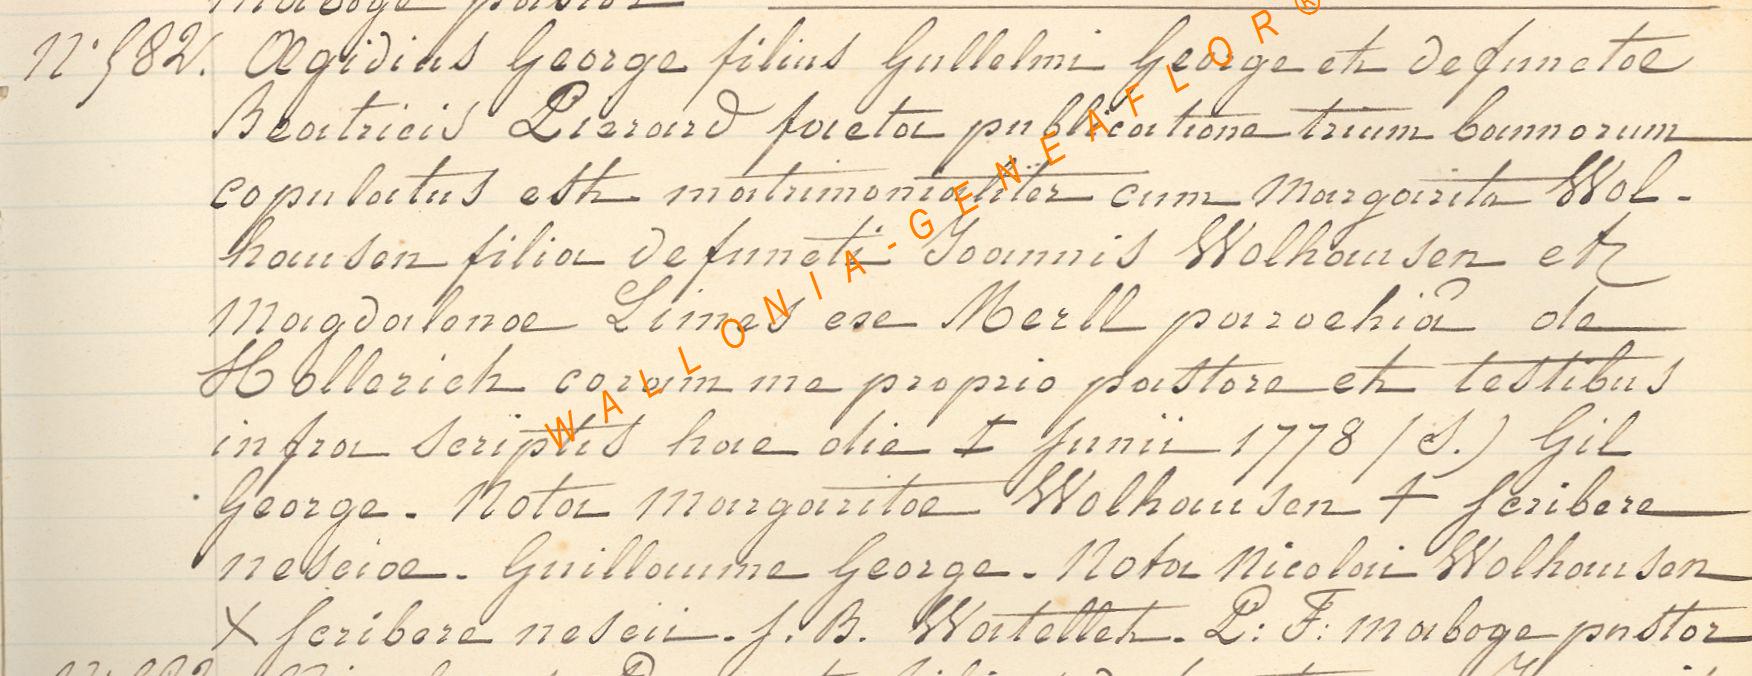 maboge pastor
N° 582. Ægidius George filius Gullelmi George et defunctæ
Beatricis Pierard facta publicatione trium bannorum
copulatus est matrimonialiter cum Margarita Wol-
hausen filia defuncti Joannis Wolhausen et
Magdalenæ Limes ex Merll parochiâ de
Hollerich coram me proprio pastore et testibus
infra scriptis hac die I Junii 1778 (S.) Gil
George. Nota Margaritæ Wolhausen + scribere
nesciæ. Guillaume George. Nota Nicolai Wolhausen
X scribere nescii. J. B. Watellet. P: F: maboge pastor
WALLONIA-GENEAFLOR®